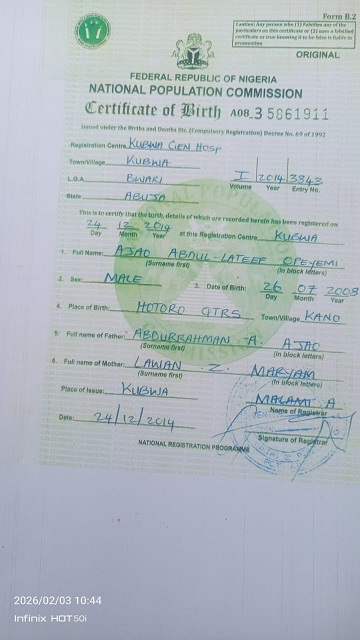 Form B.2
ORIGINAL
FEDERAL REPUBLIC OF NIGERIA
NATIONAL POPULATION COMMISSION
Certificate of Birth A08.35861911
Issued under the Births and Deaths Etc. (Compulsory Registration) Decree No. 69 of 1992
Registration Centre KUBWA GEN HOSP
Town/Village KUBWA
L.G.A. BWARI I 2014 3843
Volume Year Entry No.
State ABUJA
This is to certify that the birth, details of which are recorded herein has been registered on
24 12 2014 at this Registration Centre KUBWA
Day Month Year
1. Full Name: AJAO ABDUL-LATEEF OPEYEMI
(Surname first) (in block letters)
2. Sex: MALE 3. Date of Birth: 26 07 2008
Day Month Year
4. Place of Birth: HOTORO GTRS Town/Village KANO
5. Full name of Father: ABDURRAHMAN A. AJAO
(Surname first) (in block letters)
6. Full name of Mother: LAWAN Z. MARYAM
(Surname first) (in block letters)
Place of Issue: KUBWA MALAMI A
Name of Registrar
Date: 24/12/2014
Signature of Registrar
NATIONAL REGISTRATION PROGRAMME
2026/02/03 10:44
Infinix HOT50i